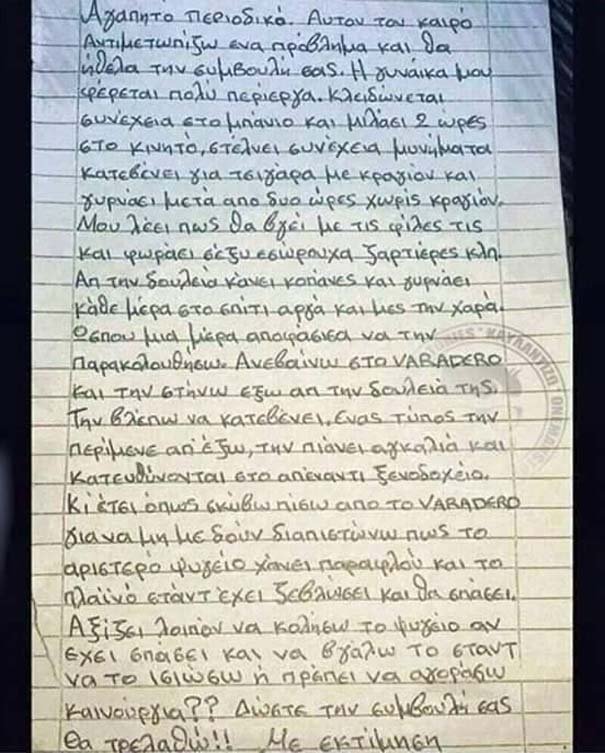 Αγαπητό περιοδικό. Αυτον τον καιρό
Αντιμετωπίζω ενα πρόβλημα και θα
ήθελα την συμβουλή σας. Η γυναίκα μου
φέρεται πολύ περίεργα. Κλειδώνεται
συνέχεια στο μπάνιο και μιλάει 2 ώρες
στο κινητό, στέλνει συνέχεια μυνήματα
κατεβένει για τσιγάρα με κραγιόν και
γυρνάει μετά απο δυο ώρες χωρίς κραγιόν.
Μου λέει πως θα βγεί με τις φίλες της
και φωράει σέξυ εσώρουχα ζαρτιέρες κλπ.
Απ την δουλειά κάνει κοπάνες και γυρνάει
κάθε μέρα στο σπίτι αργά και μες την χαρά.
Ώσπου μια μέρα αποφάσισα να την
παρακολουθήσω. Ανεβαίνω στο VARADERO
και την στήνω έξω απ την δουλειά της.
Την βλέπω να κατεβένει. Ένας τύπος την
περίμενε απ' έξω, την πιάνει αγκαλιά και
κατευθύνονται στο απέναντι ξενοδοχείο.
Κι έτσι όπως σκύβω πίσω απο το VARADERO
για να μη με δούν διαπιστώνω πως το
αριστερό ψυγείο χάνει παραφλού και το
πλαϊνό στάντ έχει ξεβλώσει και θα σπάσει.
Αξίζει λοιπόν να κολήσω το ψυγείο αν
έχει σπάσει και να βγάλω το σταντ
να το ισιώσω ή πρέπει να αγοράσω
καινούργια?? Δώστε την συμβουλή σας
θα τρελαθώ!! Με εκτίμηση
ΚΑΥΛΑΝΤΙΖΩ